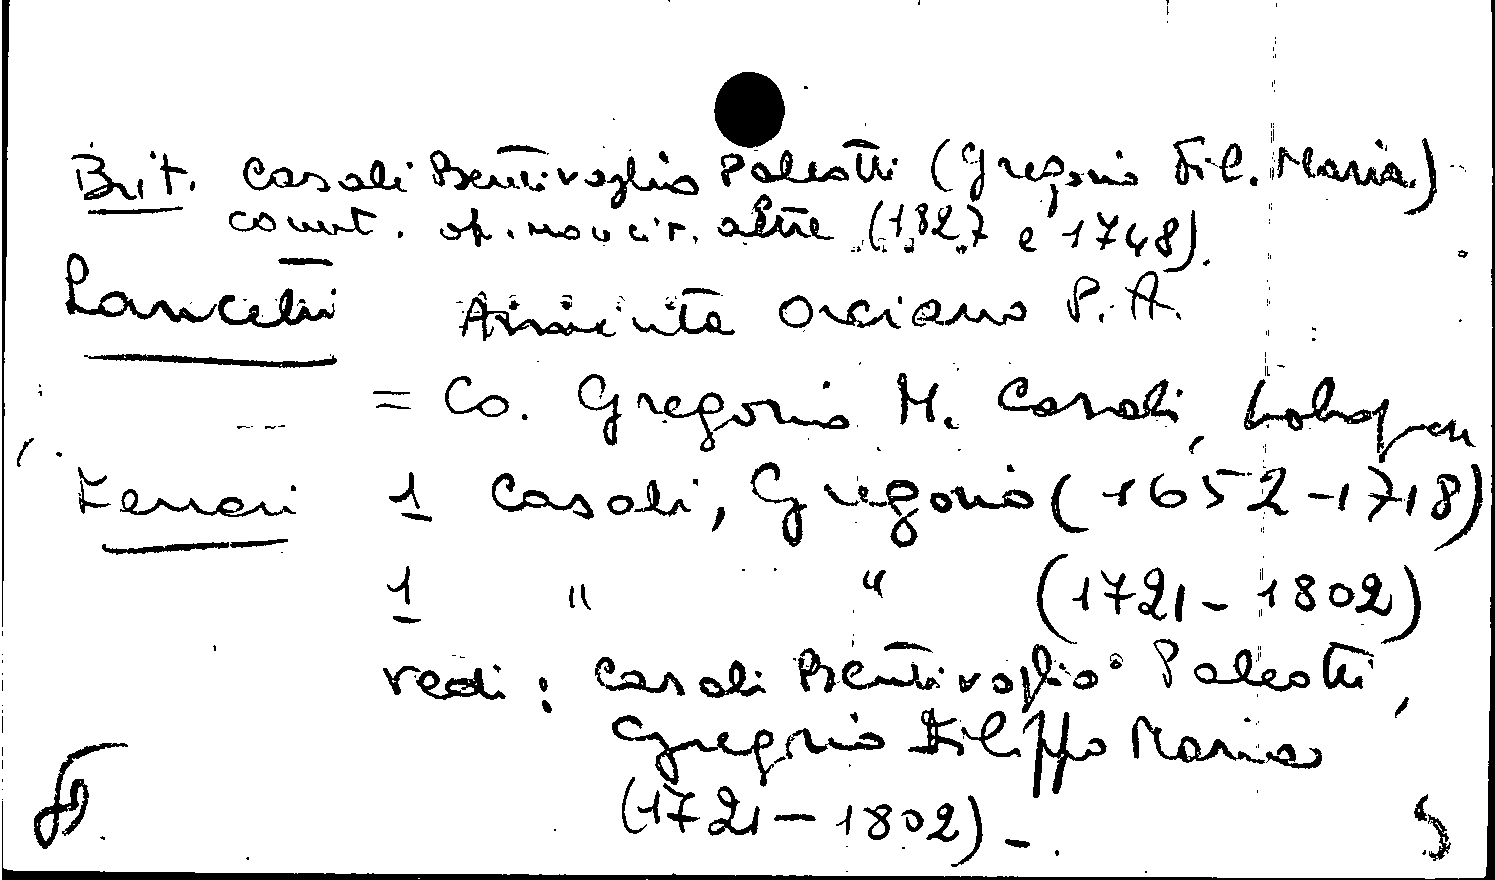 Brit. Casali Bentivoglio Paleotti (Gregorio Fil. Maria)
cont. op. altre (1827 e 1748).
Lancetti Orciano P. A.
= Co. Gregorio M. Casali,
Ferrari 1 Casali, Gregorio (1652-1718)
1 " " (1721-1802)
vedi: Casali Bentivoglio Paleotti,
Gregorio Filippo Maria
(1721-1802)-